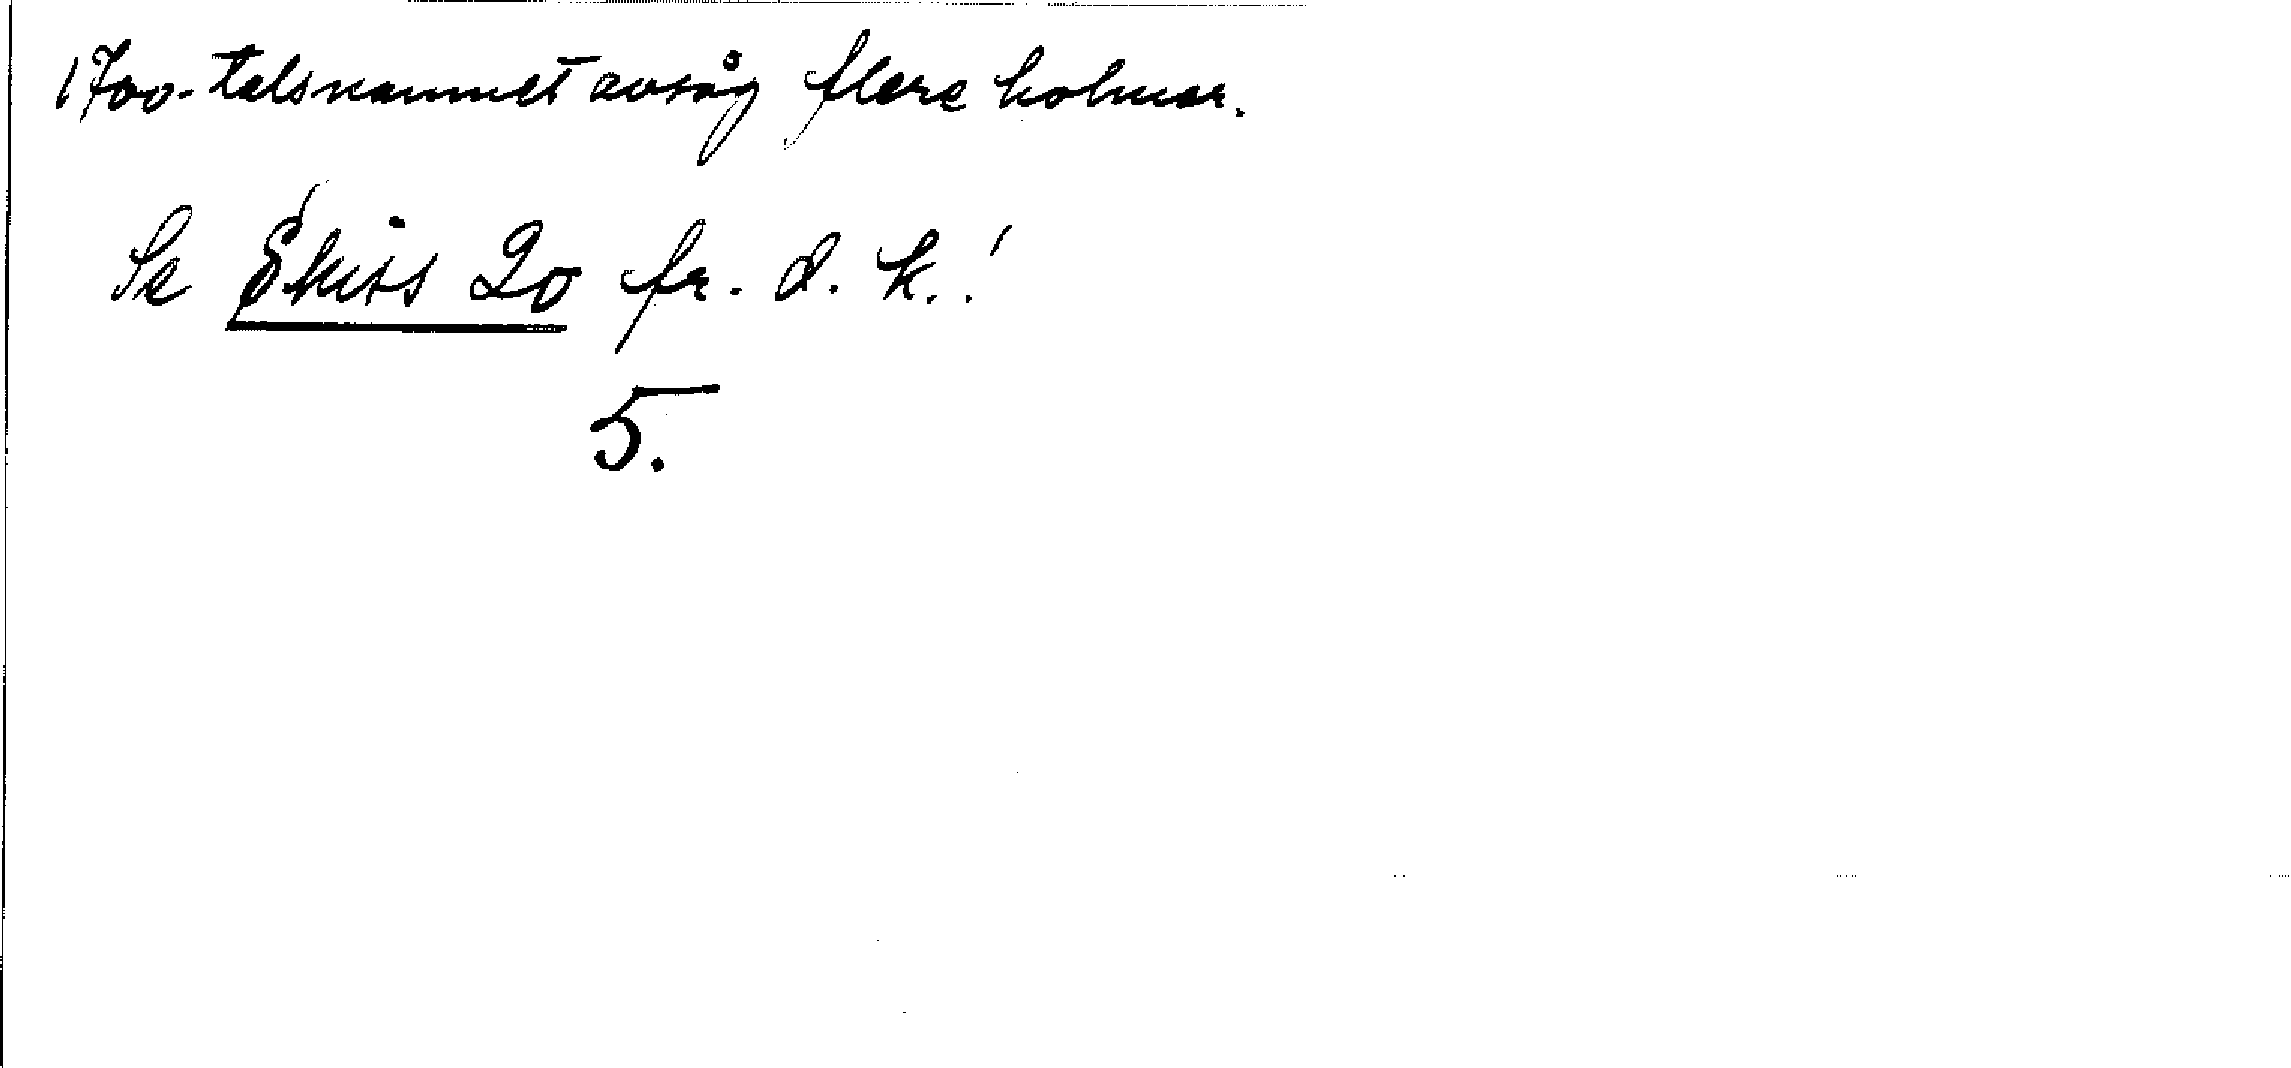 1700-talsnamnet avsåg flere holmar.
Se Skiss 20 fr. d. k.!
5.